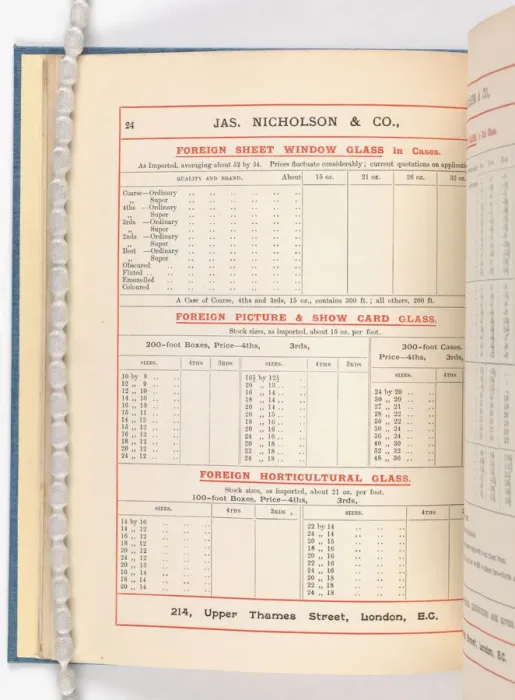 24 JAS. NICHOLSON & CO.,
FOREIGN SHEET WINDOW GLASS in Cases.
As Imported, averaging about 52 by 34. Prices fluctuate considerably; current quotations on applicatio
QUALITY AND BRAND. About 15 oz. 21 oz. 26 oz. 32 oz.
Coarse—Ordinary
„ Super
4ths —Ordinary
„ Super
3rds —Ordinary
„ Super
2nds —Ordinary
„ Super
Best —Ordinary
„ Super
Obscured
Fluted
Enamelled
Coloured
A Case of Coarse, 4ths and 3rds, 15 oz., contains 300 ft.; all others, 200 ft.
FOREIGN PICTURE & SHOW CARD GLASS.
Stock sizes, as imported, about 15 oz. per foot.
200-foot Boxes, Price—4ths, 3rds,
SIZES. 4THS 3RDS SIZES. 4THS 3RDS
10 by 8
12 „ 9
12 „ 10
14 „ 10
16 „ 10
15 „ 11
14 „ 12
15 „ 12
16 „ 12
18 „ 12
20 „ 12
24 „ 12
16½ by 12½
20 „ 13
16 „ 14
18 „ 14
20 „ 14
20 „ 15
18 „ 16
20 „ 16
24 „ 16
20 „ 18
22 „ 18
24 „ 18
300-foot Cases.
Price—4ths, 3rds,
SIZES. 4THS
24 by 20
30 „ 20
27 „ 21
28 „ 22
30 „ 22
30 „ 24
36 „ 24
40 „ 30
52 „ 32
48 „ 36
FOREIGN HORTICULTURAL GLASS.
Stock sizes, as imported, about 21 oz. per foot.
100-foot Boxes, Price—4ths, 3rds,
SIZES. 4THS 3RDS SIZES. 4THS
14 by 10
14 „ 12
16 „ 12
18 „ 12
20 „ 12
24 „ 12
20 „ 13
16 „ 14
18 „ 14
20 „ 14
22 by 14
24 „ 14
20 „ 15
18 „ 16
20 „ 16
22 „ 16
24 „ 16
20 „ 18
22 „ 18
24 „ 18
214, Upper Thames Street, London, E.C.